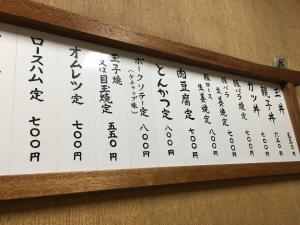 玉丼 五五〇円
親子丼 六五〇円
カツ丼 七〇〇円
豚バラ生姜焼定 七〇〇円
豚ロース生姜焼定 八〇〇円
肉豆腐定 七〇〇円
とんかつ定 八〇〇円
ポークソテー定(ケチャップ味) 八〇〇円
玉子焼又は目玉焼定 五五〇円
オムレツ定 七〇〇円
ロースハム定 七〇〇円